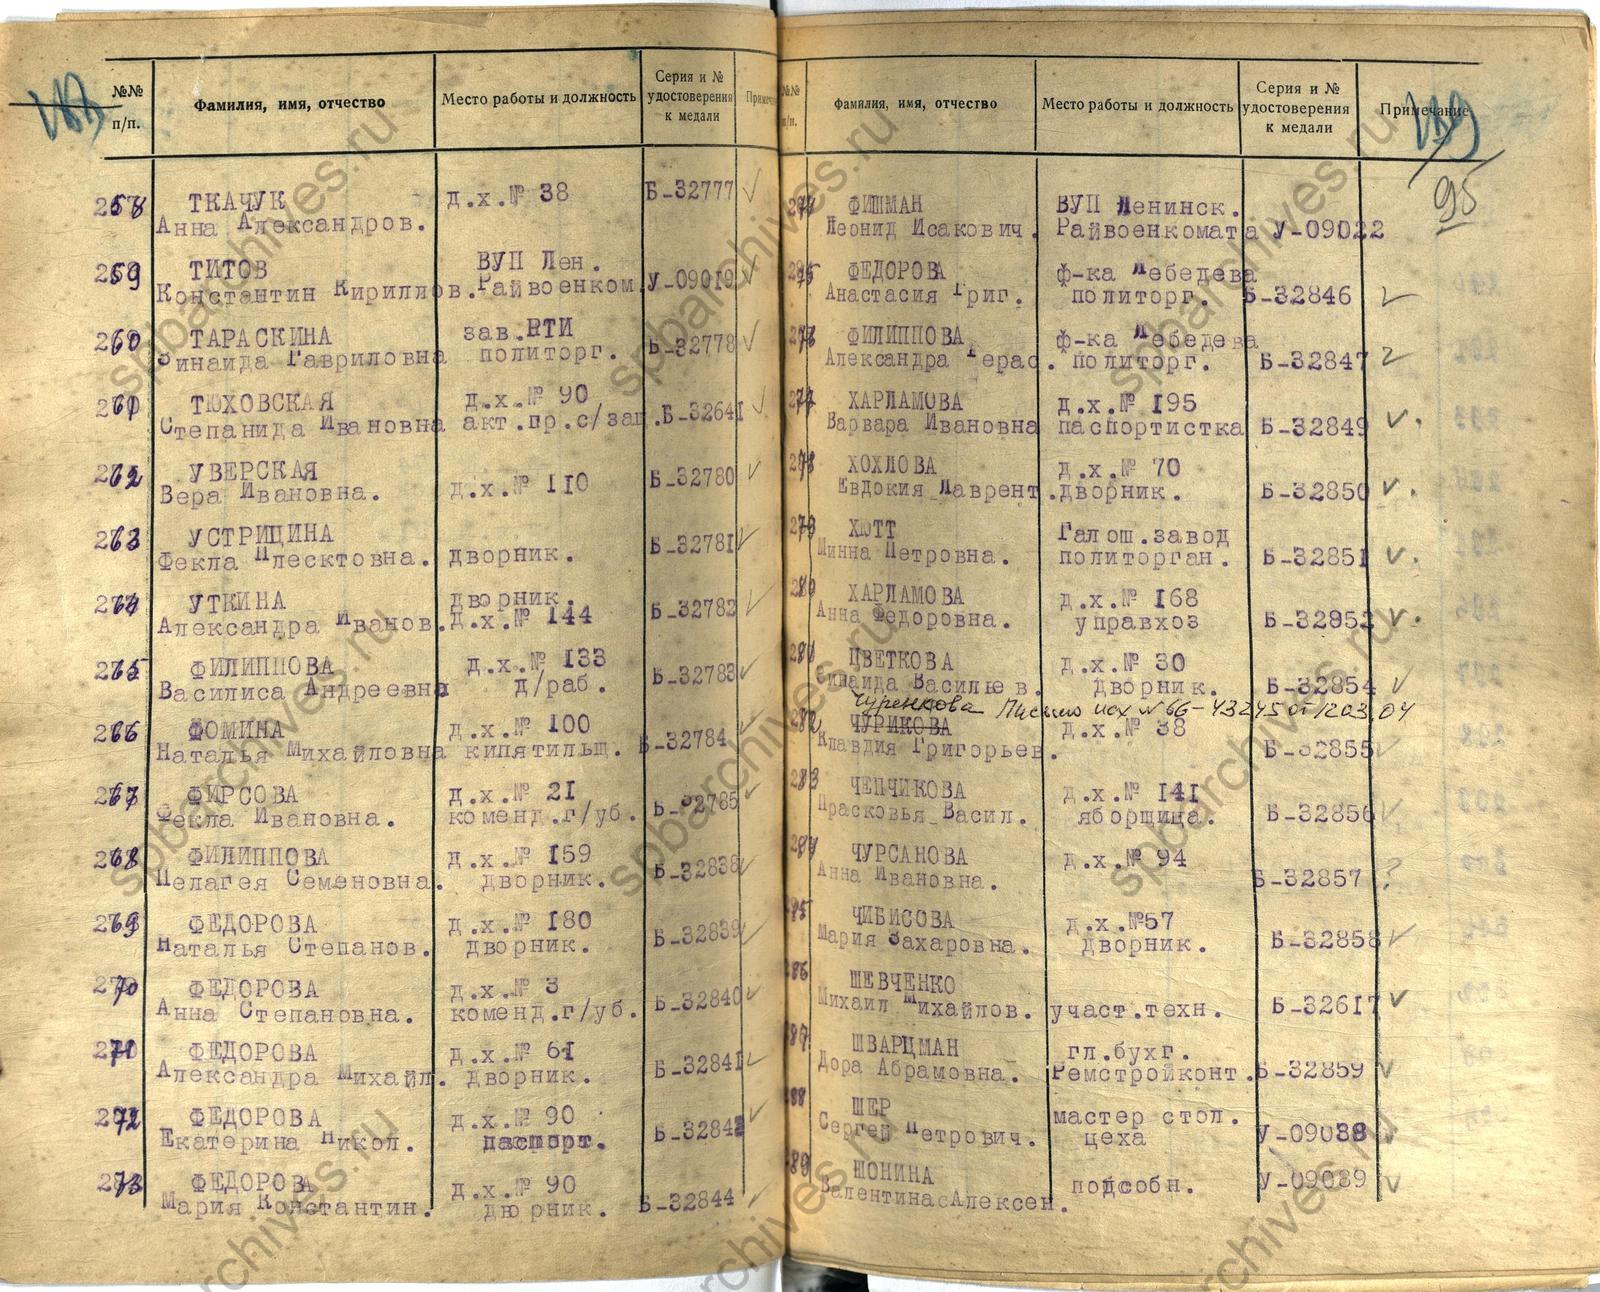 №№ п/п. Фамилия, имя, отчество Место работы и должность Серия и № удостоверения к медали
258 ТКАЧУК д.х.№ 38 Б-32777
Анна Александров.
259 ТИТОВ ВУП Лен. У-09019
Константин Кириллов. Райвоенком.
260 ТАРАСКИНА зав.РТИ Б-32778
Зинаида Гавриловна политорг.
261 ТЮХОВСКАЯ д.х.№ 90 Б-32641
Степанида Ивановна акт.пр.с/защ.
262 УВЕРСКАЯ Б-32780
Вера Ивановна. д.х.№ 110
263 УСТРИЦИНА Б-32781
Фекла Плесктовна. дворник.
264 УТКИНА дворник. Б-32782
Александра Иванов. д.х.№ 144
265 ФИЛИППОВА д.х.№ 133 Б-32783
Василиса Андреевна д/раб.
266 ФОМИНА д.х.№ 100 Б-32784
Наталья Михайловна кипятильщ.
267 ФИРСОВА д.х.№ 21 Б-32785
Фекла Ивановна. коменд.г/уб.
268 ФИЛИППОВА д.х.№ 159 Б-32838
Пелагея Семеновна. дворник.
269 ФЕДОРОВА д.х.№ 180 Б-32839
Наталья Степанов. дворник.
270 ФЕДОРОВА д.х.№ 3 Б-32840
Анна Степановна. коменд.г/уб.
271 ФЕДОРОВА д.х.№ 61 Б-32841
Александра Михайл. дворник.
272 ФЕДОРОВА д.х.№ 90
Екатерина Никол. паспорт.
273 ФЕДОРОВА д.х.№ 90 Б-32844
Мария Константин. дворник.
Фамилия, имя, отчество Место работы и должность Серия и № удостоверения к медали Примечание
95
274 ФИШМАН ВУП Ленинск.
Леонид Исакович. Райвоенкомата У-09022
275 ФЕДОРОВА ф-ка Лебедева
Анастасия Григ. политорг. Б-32846
276 ФИЛИППОВА ф-ка Лебедева
Александра Герас. политорг. Б-32847
277 ХАРЛАМОВА д.х.№ 195
Варвара Ивановна паспортистка Б-32849
278 ХОХЛОВА д.х.№ 70
Евдокия Лаврент. дворник. Б-32850
279 ХЮТТ Галош.завод
Минна Петровна. политорган. Б-32851
280 ХАРЛАМОВА д.х.№ 168
Анна Федоровна. управхоз Б-32952
281 ЦВЕТКОВА д.х.№ 30
Зинаида Василье в. дворник. Б-32854
Чуренкова Письмо исх №66-43245 от 12.03.04
282 ЧУРИКОВА д.х.№ 38
Клавдия Григорьев. Б-32855
283 ЧЕПЧИКОВА д.х.№ 141
Прасковья Васил. яборщица. Б-32856
284 ЧУРСАНОВА д.х.№ 94
Анна Ивановна. Б-32857 ?
285 ЧИБИСОВА д.х.№57
Мария Захаровна. дворник. Б-32858
286 ШЕВЧЕНКО
Михаил Михайлов. участ.техн. Б-32617
287 ШВАРЦМАН гл.бухг.
Дора Абрамовна. Ремстройконт. Б-32859
288 ШЕР мастер стол.
Сергей Петрович. цеха У-09038
289 ШОНИНА подсобн. У-09039
Валентина Алексен.
spbarchives.ru